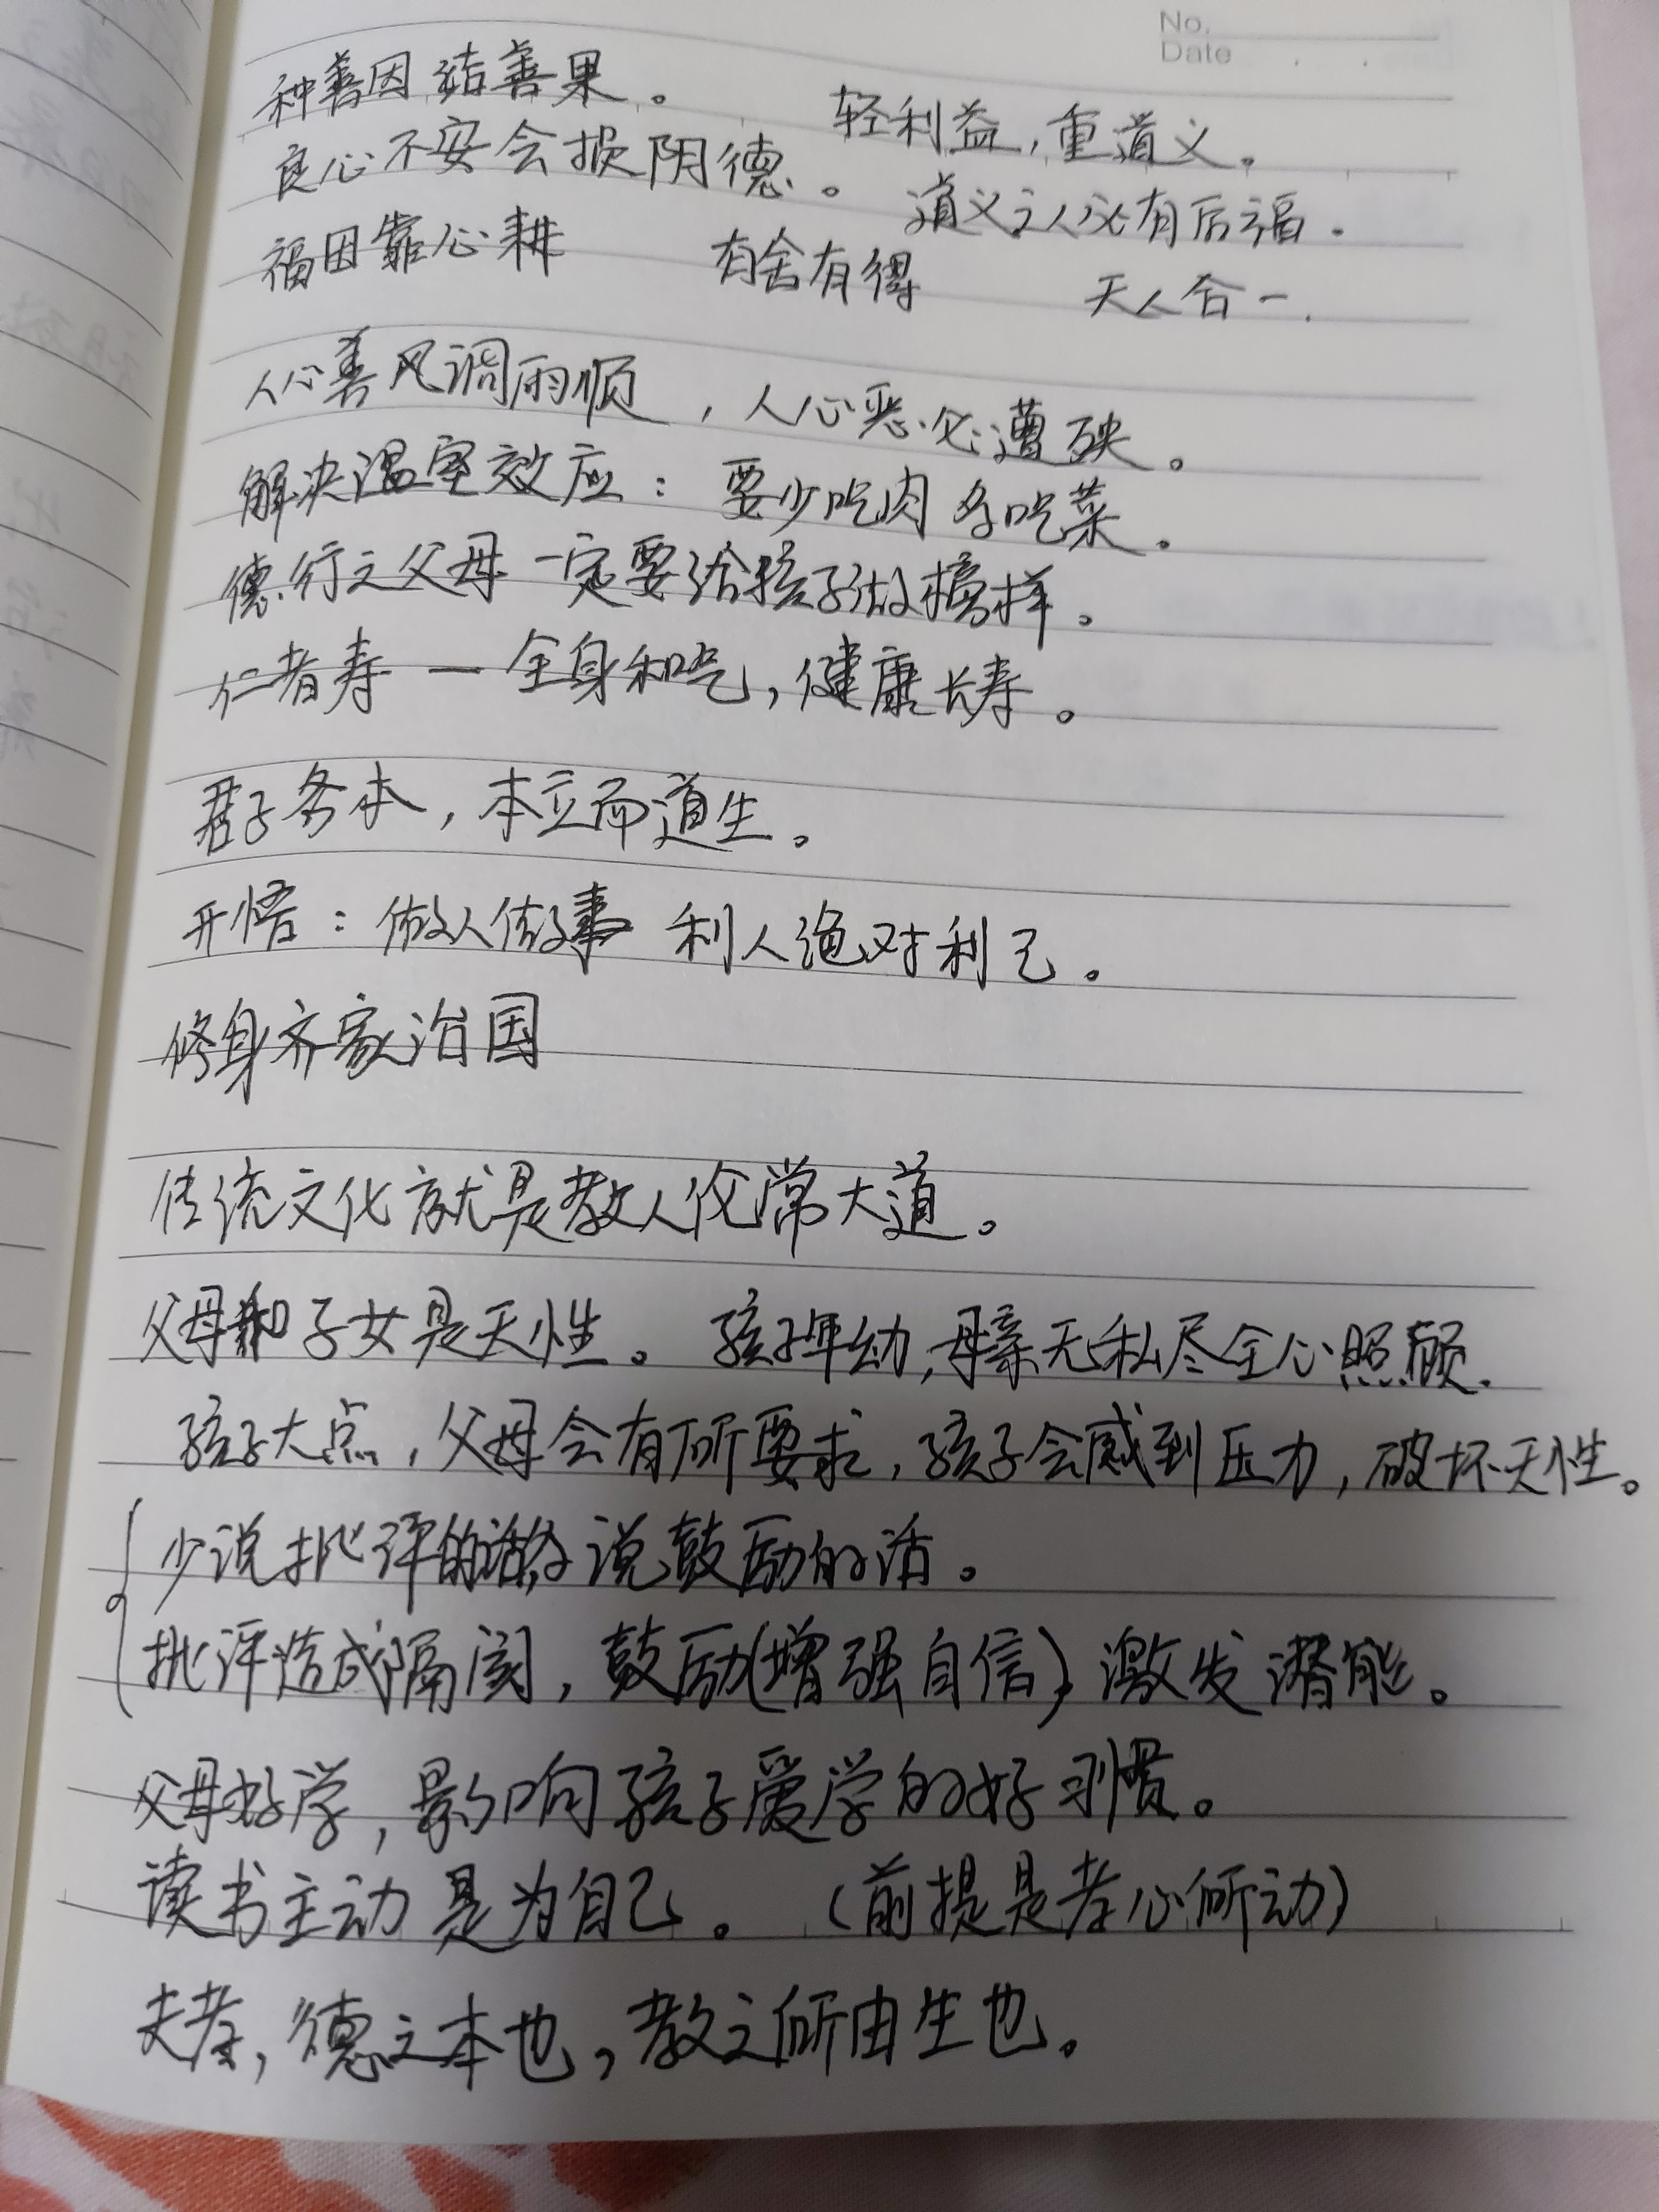 No.
Date
种善因 结善果。 轻利益,重道义。
良心不安会损阴德。 道义之人必有后福.
福田靠心耕 有舍有得 天人合一.
人心善风调雨顺,人心恶必遭殃。
解决温室效应:要少吃肉多吃菜。
德行之父母一定要给孩子做榜样。
仁者寿—全身和气,健康长寿。
君子务本,本立而道生。
开悟:做人做事 利人绝对利己。
修身齐家治国
传统文化就是教人伦常大道。
父母和子女是天性。 孩子年幼,母亲无私尽全心照顾.
孩子大点,父母会有所要求,孩子会感到压力,破坏天性。
少说批评的话多说鼓励的话。
批评造成隔阂,鼓励(增强自信)激发潜能。
父母好学,影响孩子爱学的好习惯。
读书主动是为自己。(前提是孝心所动)
夫孝,德之本也,教之所由生也。